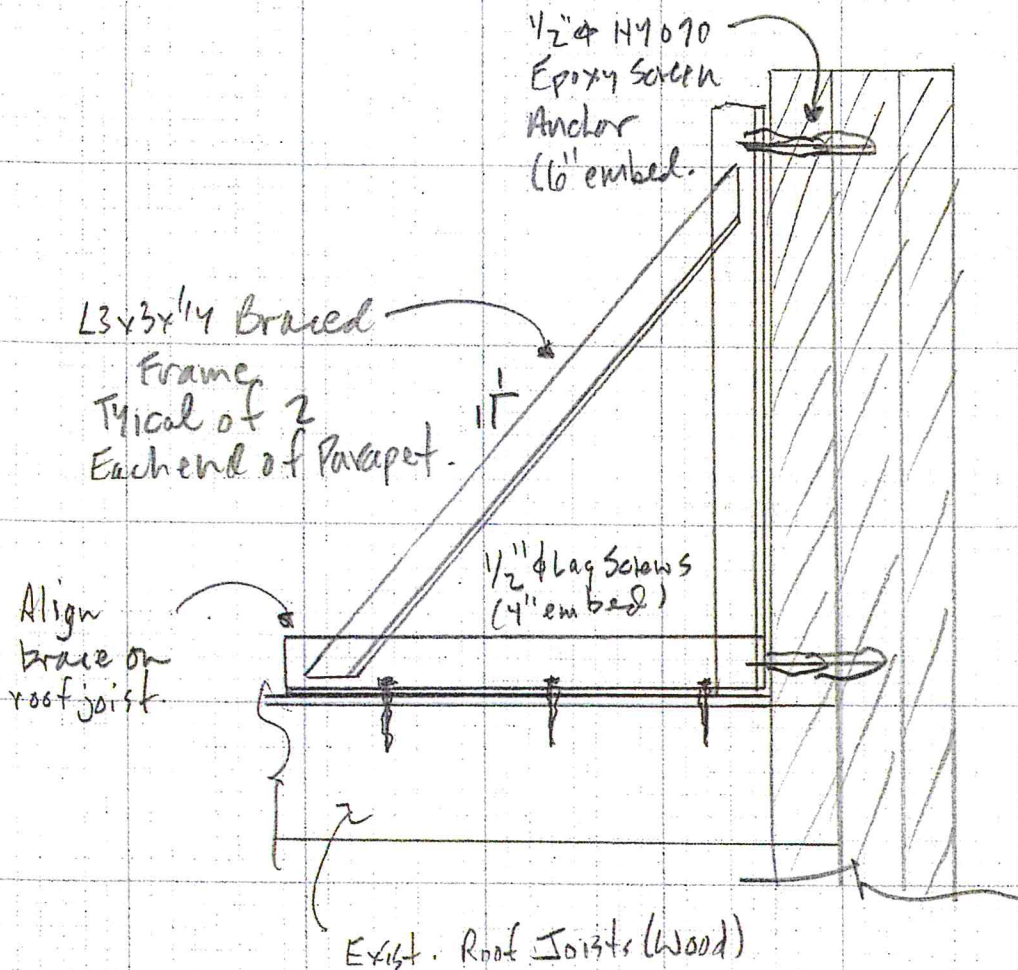 1/2"φ HY070
Epoxy Screen
Anchor
(6" embed.
L3x3x1/4 Braced
Frame
Tyical of 2
Each end of Parapet.
1/2"φ Lag Screws
(4" embed)
Align
brace on
roof joist.
Exist. Roof Joists (Wood)